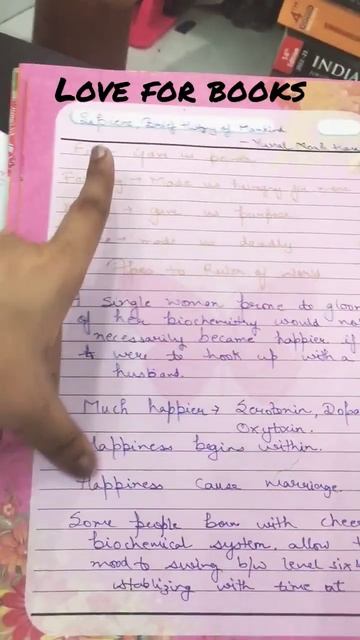 INDIA
LOVE FOR BOOKS
Sapiens, Brief History of Mankind
- Yuval Noah
gave us power
Made us hungry for more
gave us purpose
made us deadly
Apes to Ruler of world
A Single women prone to gloom
of her biochemistry would no
necessarily became happier if
were to hook up with a
husband.
Much happier → Serotonin, Dopa
Oxytoxin.
Happiness begins within.
Happiness cause marriage.
Some people born with chee
biochemical system. allow
mood to swing b/w level six
stablizing with time at